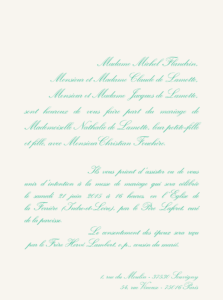 Madame Michel Flandrin,
Monsieur et Madame Claude de Lunette,
Monsieur et Madame Jacques de Lunette,
sont heureux de vous faire part du mariage de
Mademoiselle Nathalie de Lunette, leur petite-fille
et fille, avec Monsieur Christian
Ils vous prient d'assister ou de vous
unir d'intention à la messe de mariage qui sera célébrée
le samedi 21 juin à 16 heures, en l'Église de
la (Indre-et-Loire), par le Père
de la paroisse.
Le consentement des époux sera reçu
par le Père Hervé s.p., cousin du marié.
rue du Moulin - 37320
rue - 75016 Paris